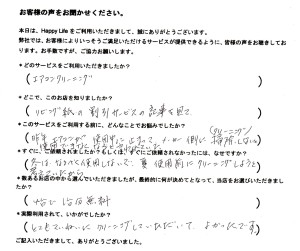 お客様の声をお聞かせください。
本日は、Happy Lifeをご利用いただきまして、誠にありがとうございます。
弊社では、お客様によりいっそうご満足いただけるサービスが提供できるように、皆様の声をお聴きしており
ます。お手数ですが、ご協力お願いします。
*どのサービスをご利用されましたか？
(エアコンクリーニング)
*どこで、このお店を知りましたか？
(リビング紙の割引サービスの記事を見て)
*このサービスをご利用する前に、どんなことでお悩みでしたか？
(クリーニング)
昨年エアコンが使用中に止まって
*すぐに、ご依頼されましたか？もしくは、すぐにご依頼されなかったには、なぜですか？
冬はなるべく使用しないで、夏使用前にクリーニングしようと
考えていたから
*数あるお店の中から選んでいただきましたが、最終的に何が決めてとなって、当店をお選びいただきまし
たか？
*実際利用されて、いかがでしたか？
(とてもていねいにクリーニングしていただいて、よかったです)
ご記入いただきまして、ありがとうございました。